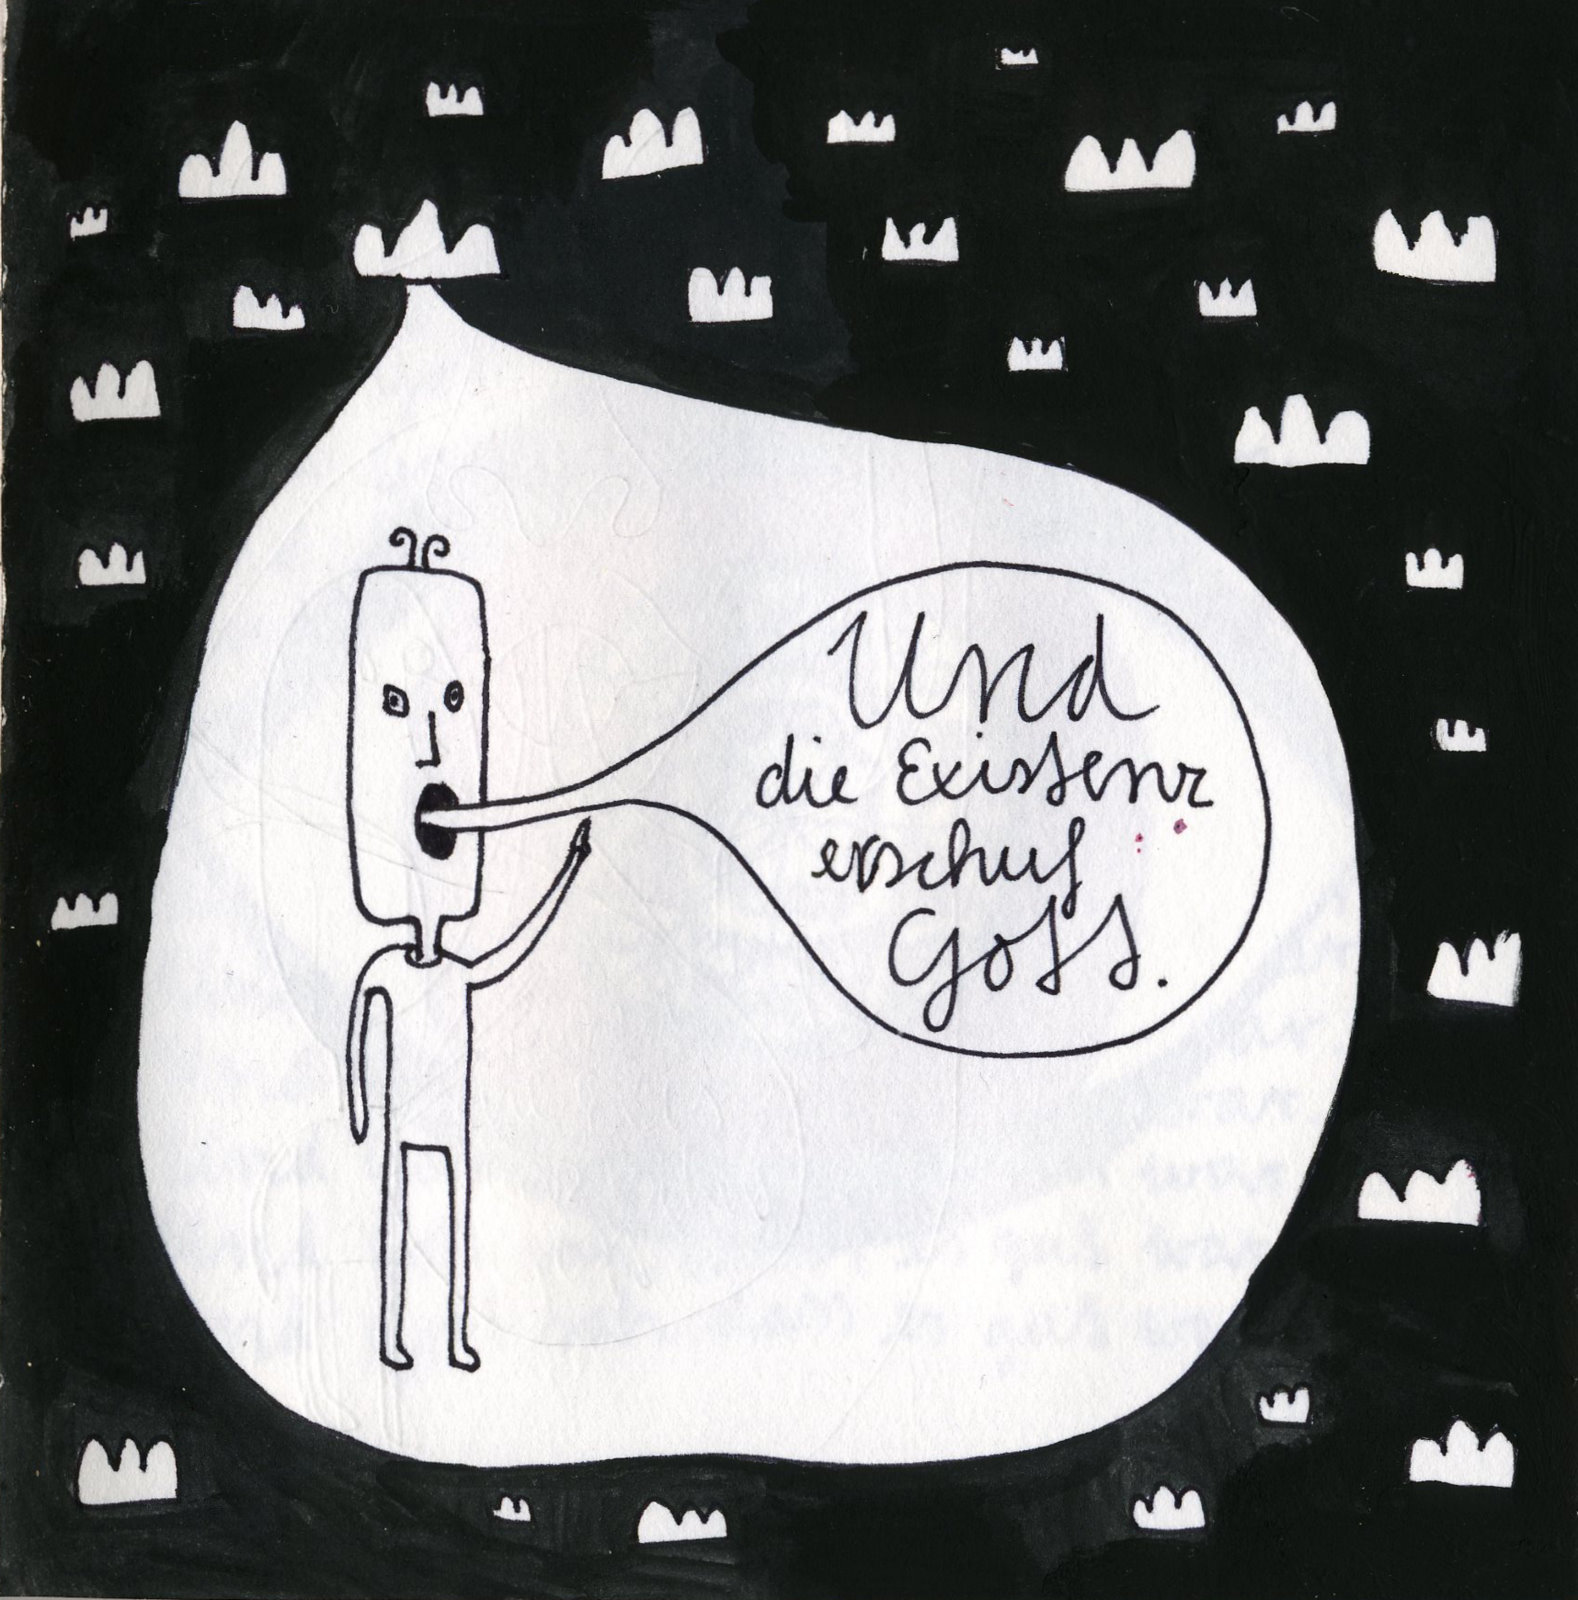 Und
die Existenz
erschuf
Gott.